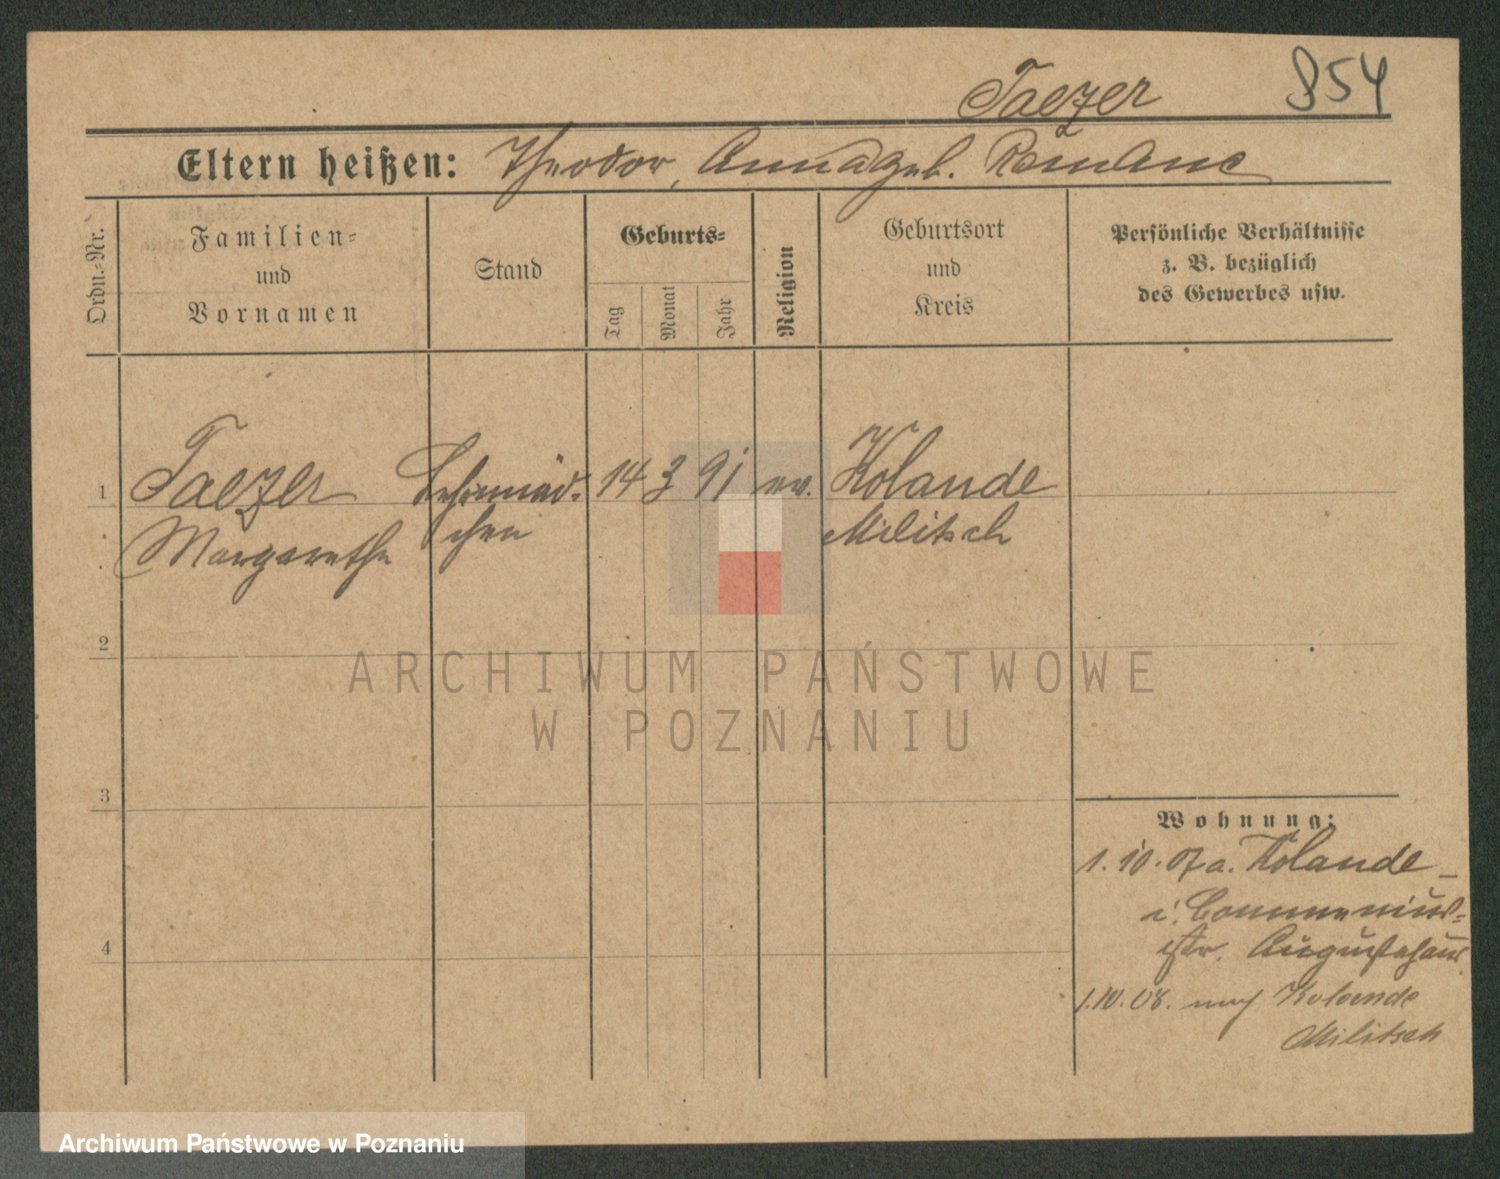 Taezer 854
Eltern heißen: Theodor, Anna geb. Romane
Ordn.-Nr.
Familien-
und
Vornamen
Stand
Geburts-
Tag
Monat
Jahr
Religion
Geburtsort
und
Kreis
Persönliche Verhältnisse
z. B. bezüglich
des Gewerbes usw.
1 Taezer 14 3 91 ev. Kolande
Margarethe chen Militsch
2
ARCHIWUM PAŃSTWOWE
W POZNANIU
3
Wohnung:
1.10.07 a. Kolande
i. Commenius-
str. Augustahaus
4
1.10.08. nach Kolande
Militsch
Archiwum Państwowe w Poznaniu